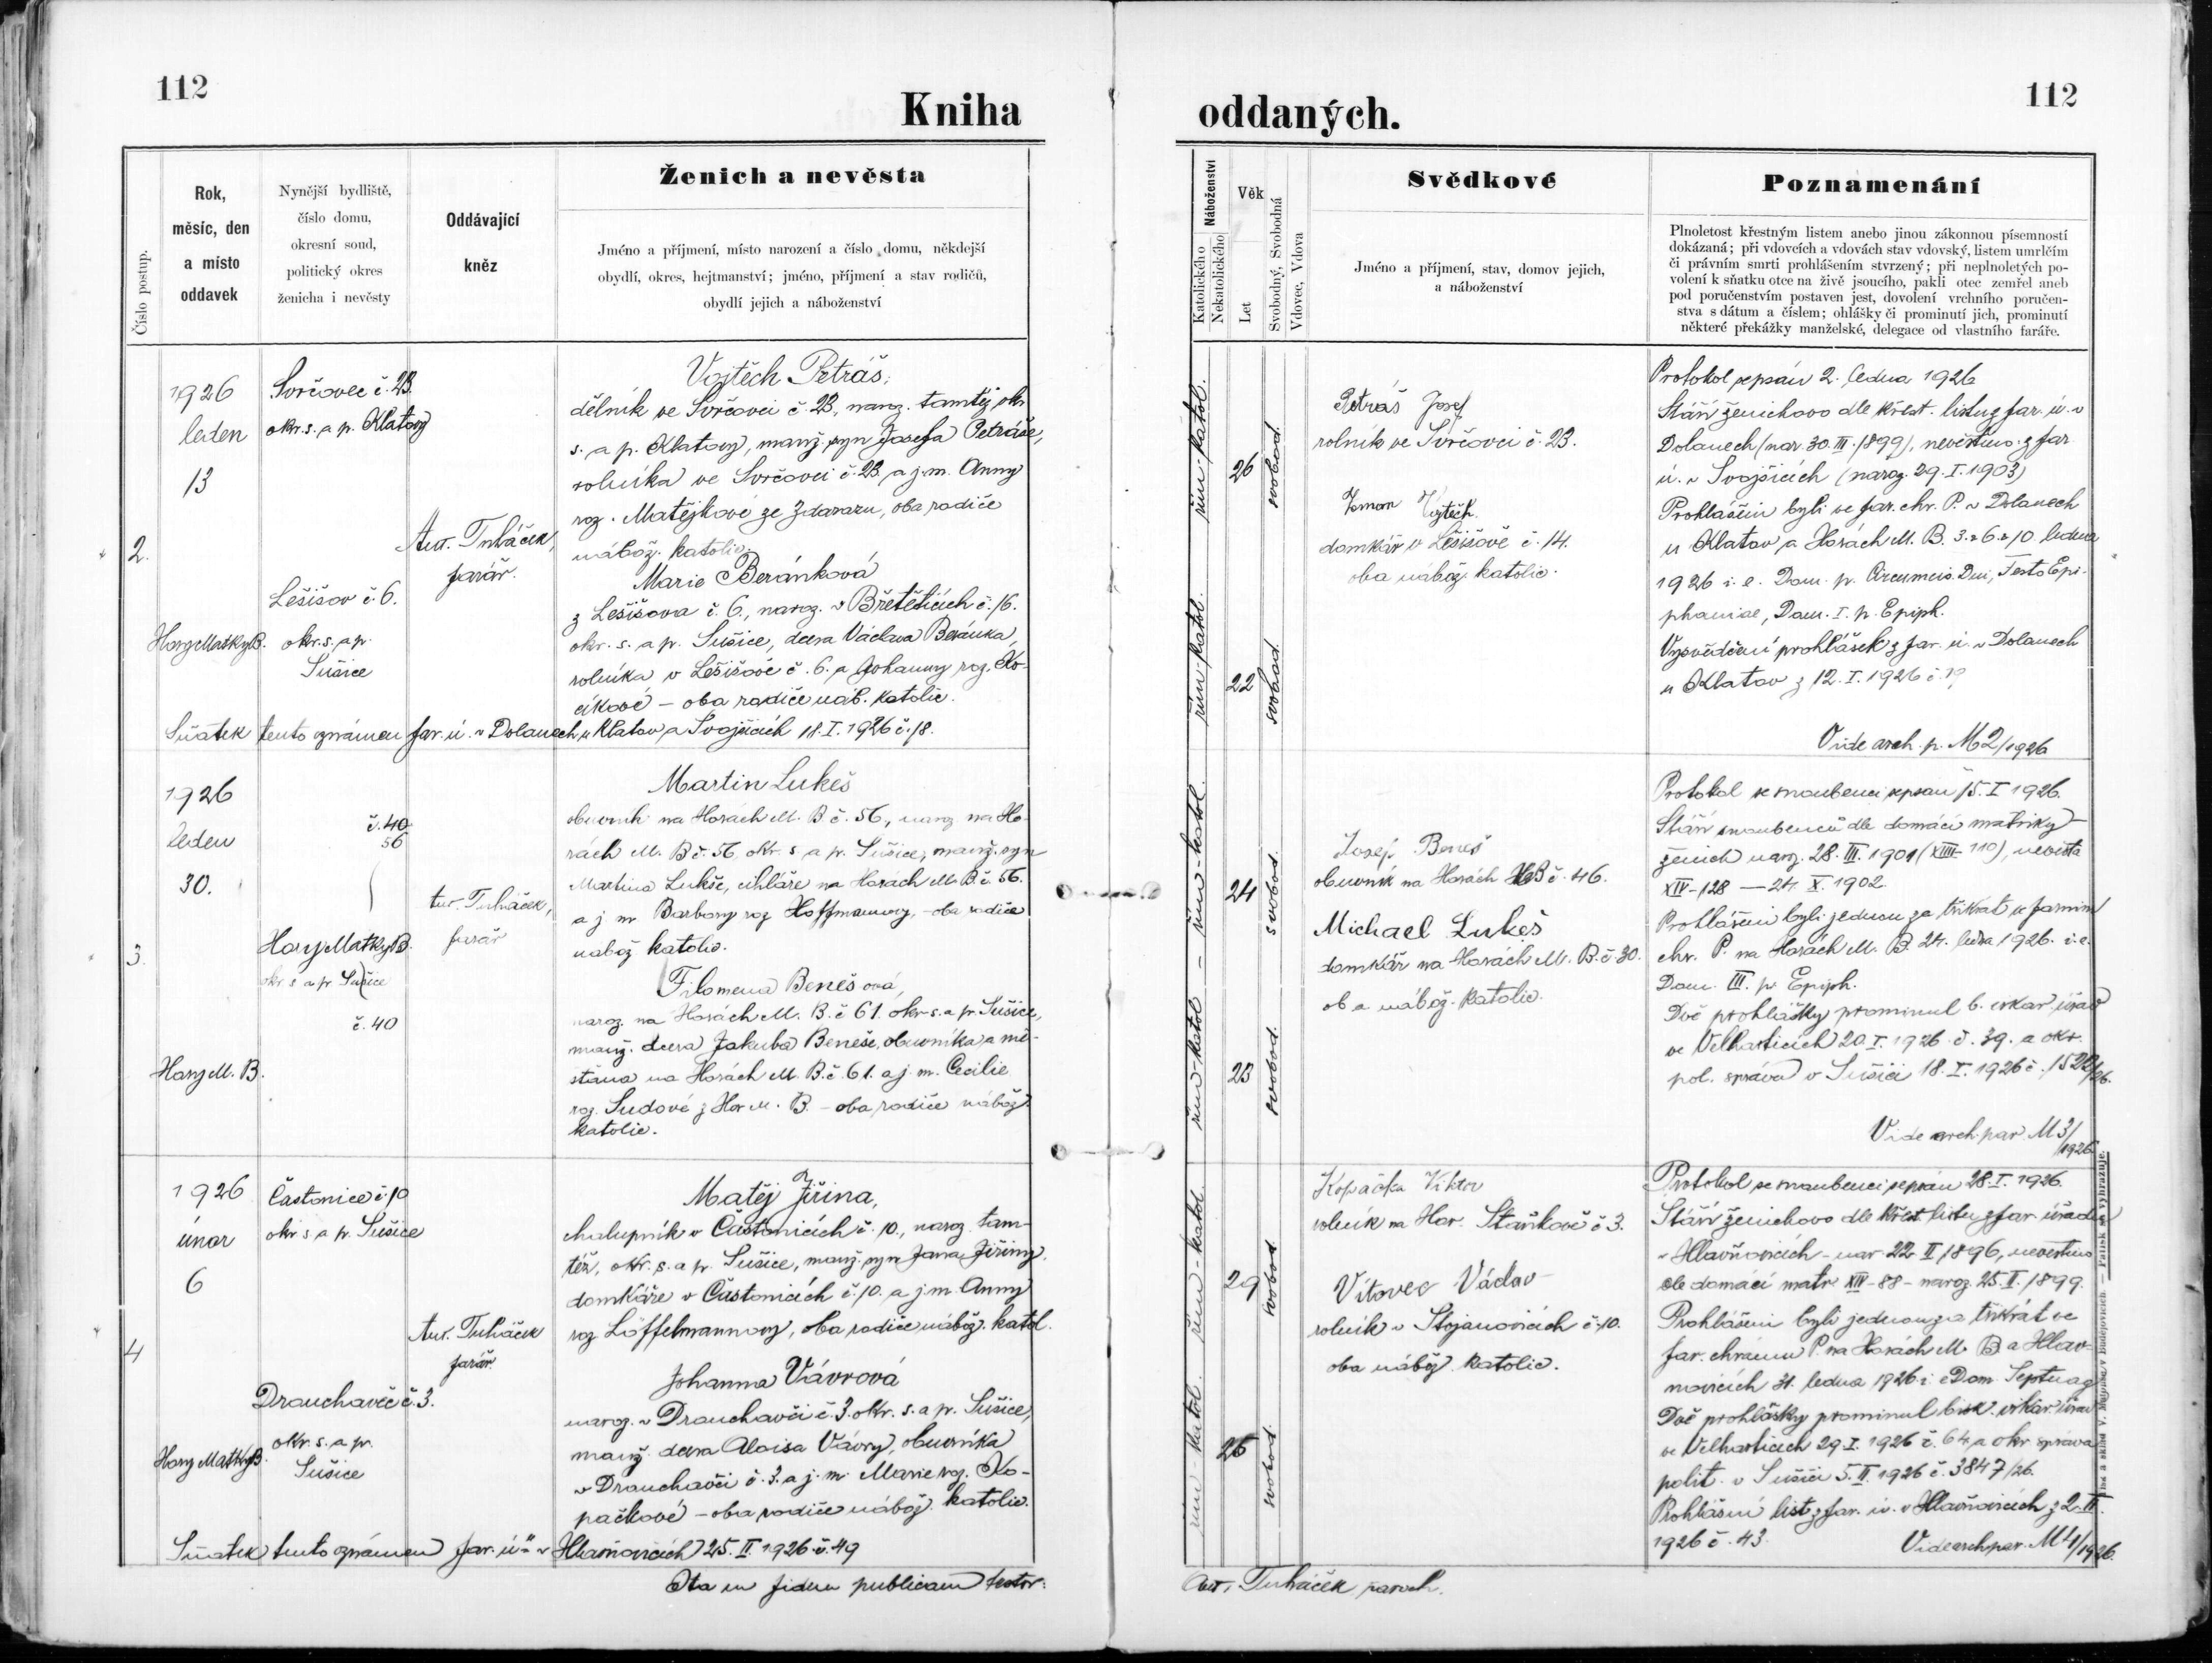 112
Kniha
oddaných.
112
Číslo postup.
Rok,
měsíc, den
a místo
oddavek
Nynější bydliště,
číslo domu,
okresní soud,
politický okres
ženicha i nevěsty
Oddávající
kněz
Ženich a nevěsta
Jméno a příjmení, místo narození a číslo domu, někdejší
obydlí, okres, hejtmanství; jméno, příjmení a stav rodičů,
obydlí jejich a náboženství
Náboženství
Katolického
Nekatolického
Věk
Let
Svobodný, Svobodná
Vdovec, Vdova
Svědkové
Jméno a příjmení, stav, domov jejich,
a náboženství
Poznamenání
Plnoletost křestným listem anebo jinou zákonnou písemností
dokázaná; při vdovcích a vdovách stav vdovský, listem umrlčím
či právním smrti prohlášením stvrzený; při neplnoletých po-
volení k sňatku otce na živě jsoucího, pakli otec zemřel aneb
pod poručenstvím postaven jest, dovolení vrchního poručen-
stva s dátum a číslem; ohlášky či prominutí jich, prominutí
některé překážky manželské, delegace od vlastního faráře.
2.
1926
leden
13
Hory Matky B.
Svrčovec č. 23.
okr. s. a p. Klatovy
Lešišov č. 6.
okr. s. a p.
Sušice
Ant. Tuháček,
farář.
Vojtěch Petráš,
dělník ve Svrčovci č. 23, naroz. tamtéž, okr.
s. a p. Klatovy, manž. syn Josefa Petráše,
rolníka ve Svrčovci č. 23 a j. m. Anny
roz. Matějkové ze Zdavazu, oba rodiče
nábož. katolic.
Marie Beránková
z Lešišova č. 6., naroz. v Břetěticích č. 16.
okr. s. a p. Sušice, dcera Václava Beránka,
rolníka v Lešišově č. 6. a Johanny roz. Ko-
cíkové – oba rodiče náb. katolic.
Sňatek tento oznámen far. ú. v Dolanech u Klatov a Svojšicích 18. I. 1926 č. 18.
řím. katol.
26
svobod.
řím. katol.
22
svobod.
Petráš Josef
rolník ve Svrčovci č. 23.
Zeman Vojtěch
domkář v Lešišově č. 14.
oba nábož. katolic.
Protokol sepsán 2. ledna 1926
Stáří ženichovo dle křest. listu z far. ú. v
Dolanech (nar. 30. III. 1899), nevěstino z far.
ú. v Svojšicích (naroz. 29. I. 1903)
Prohlášeni byli ve far. chr. P. v Dolanech
u Klatov a Horách M. B. 3. a 6. a 10. ledna
1926 i. e. Dom. p. Circumcis. Dni, Festo Epi-
phaniae, Dom. I. p. Epiph.
Vysvědčení prohlášek z far. ú. v Dolanech
u Klatov z 12. I. 1926 č. 19
Vide arch. p. M 2/1926
3.
1926
leden
30.
Hory M. B.
č. 40
56
Hory Matky B.
okr. s. a p. Sušice
č. 40
Ant. Tuháček,
farář
Martin Lukeš
obuvník na Horách M. B. č. 56, naroz. na Ho-
rách M. B. č. 56, okr. s. a p. Sušice, manž. syn
Martina Lukše, cihláře na Horách M. B. č. 56.
a j. m. Barbory roz. Hoffmannovy, – oba rodiče
nábož. katolic.
Filomena Benešová,
naroz. na Horách M. B. č. 61. okr. s. a p. Sušice,
manž. dcera Jakuba Beneše, obuvníka a mě-
šťana na Horách M. B. č. 61. a j. m. Cecilie
roz. Sudové z Hor M. B. – oba rodiče nábož.
katolic.
řím-katol.
24
svobod.
řím-katol.
23
svobod.
Josef Beneš
obuvník na Horách MB č. 46.
Michael Lukeš
domkář na Horách M. B. č. 30.
oba nábož. katolic.
Protokol se snoubenci sepsán 15. I. 1926.
Stáří snoubenců dle domácí matriky –
ženich naroz. 28. III. 1901 (XIII-110), nevěsta
XIV-128 — 24. X. 1902.
Prohlášeni byli jednou za třikrát ve farním
chr. P. na Horách M. B. 24. ledna 1926. i. e.
Dom. III. p. Epiph.
Dvě prohlášky prominul b. vikar. úřad
ve Velharticích 20. I. 1926 č. 39. a okr.
pol. správa v Sušici 18. I. 1926 č. 1522/26.
Vide arch. par. M 3/1926
4
1926
únor
6
Hory Matky B.
Častonice č. 10
okr. s. a p. Sušice
Drouhaveč č. 3.
okr. s. a p.
Sušice
Ant. Tuháček
farář.
Matěj Jiřina,
chalupník v Častonicích č. 10., naroz. tam-
též, okr. s. a p. Sušice, manž. syn Jana Jiřiny,
domkáře v Častonicích č. 10. a j. m. Anny
roz. Löffelmannovy, oba rodiče nábož. katol.
Johanna Vávrová
naroz. v Drouhavči č. 3. okr. s. a p. Sušice,
manž. dcera Aloisa Vávry, obuvníka
v Drouhavči č. 3. a j. m. Marie roz. Ko-
pačkové – oba rodiče nábož. katolic.
Sňatek tento oznámen far. ú. v Hlavňovicích 25. II. 1926 č. 49
řím-katol.
29
svobod.
řím-katol.
25
svobod.
Kopačka Viktor
rolník na Hor. Staňkově č. 3.
Vítovec Václav
rolník v Stojanovicích č. 10.
oba nábož. katolic.
Protokol se snoubenci sepsán 28. I. 1926.
Stáří ženichovo dle křest. listu z far. úřadu
v Hlavňovicích – nar. 22. II. 1896, nevěstino
dle domácí matr. XIV-88 – naroz. 25. II. 1899.
Prohlášeni byli jednou za třikrát ve
far. chrámu P. na Horách M. B. a Hlav-
ňovicích 31. ledna 1926 i. e. Dom. Septuag.
Dvě prohlášky prominul bisk. vikar. úřad
ve Velharticích 29. I. 1926 č. 64 a okr. správa
polit. v Sušici 5. II. 1926 č. 3847/26.
Prohlášní list z far. ú. v Hlavňovicích z 2. II.
1926 č. 43.
Vide arch. par. M 4/1926.
Ita in fidem publicam testor:
Ant. Tuháček paroch.